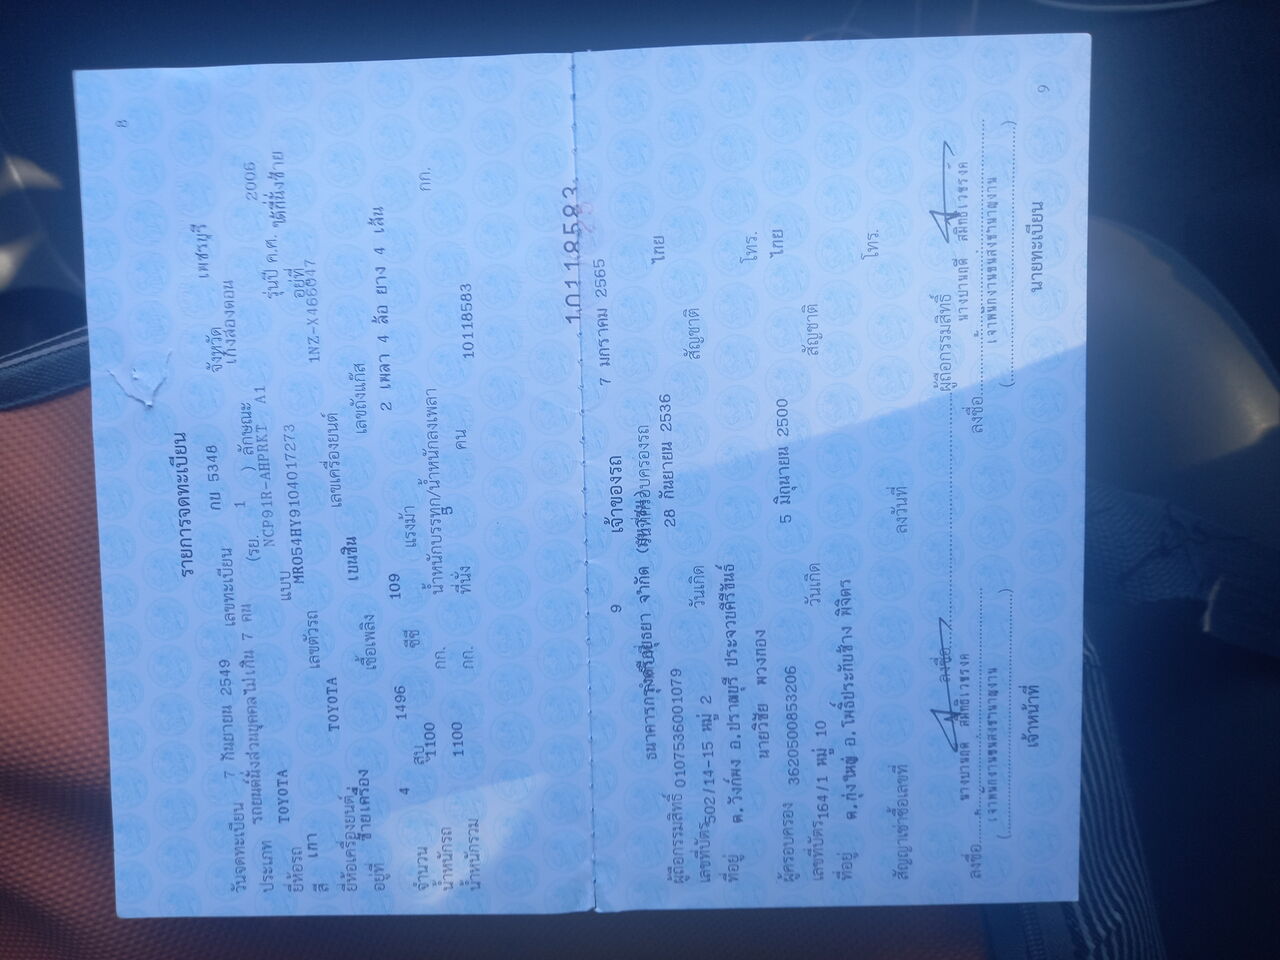 8
รายการจดทะเบียน
วันจดทะเบียน 7 กันยายน 2549 เลขทะเบียน กบ 5348 จังหวัด เพชรบุรี
ประเภท รถยนต์นั่งส่วนบุคคลไม่เกิน 7 คน (รย. 1 ) ลักษณะ เก๋งสองตอน
ยี่ห้อรถ TOYOTA แบบ NCP91R-AHPRKT A1 รุ่นปี ค.ศ. 2006
สี เทา เลขตัวรถ MR054HY9104017273 อยู่ที่ ใต้ที่นั่งซ้าย
ยี่ห้อเครื่องยนต์ TOYOTA เลขเครื่องยนต์ 1NZ-X466047
อยู่ที่ ซ้ายเครื่อง เชื้อเพลิง เบนซิน เลขถังแก๊ส
จำนวน 4 สูบ 1496 ซีซี 109 แรงม้า 2 เพลา 4 ล้อ ยาง 4 เส้น
น้ำหนักรถ 1100 กก. น้ำหนักบรรทุก/น้ำหนักลงเพลา กก.
น้ำหนักรวม 1100 กก. ที่นั่ง 5 คน 10118583
10118583
9 เจ้าของรถ 7 มกราคม 2565
วันที่ครอบครองรถ
ผู้ถือกรรมสิทธิ์ ธนาคารกรุงศรีอยุธยา จำกัด (มหาชน)
เลขที่บัตร 0107536001079 วันเกิด 28 กันยายน 2536 สัญชาติ ไทย
ที่อยู่ 502/14-15 หมู่ 2
ต.วังก์พง อ.ปราณบุรี ประจวบคีรีขันธ์ โทร.
ผู้ครอบครอง นายวิชัย พวงทอง
เลขที่บัตร 3620500853206 วันเกิด 5 มิถุนายน 2500 สัญชาติ ไทย
ที่อยู่ 164/1 หมู่ 10
ต.ทุ่งใหญ่ อ.โพธิ์ประทับช้าง พิจิตร โทร.
สัญญาเช่าซื้อเลขที่ ลงวันที่
ลงชื่อ ผู้ถือกรรมสิทธิ์
ลงชื่อ ลงชื่อ
เจ้าพนักงานขนส่งชำนาญงาน เจ้าพนักงานขนส่งชำนาญงาน
เจ้าหน้าที่ นายทะเบียน
9